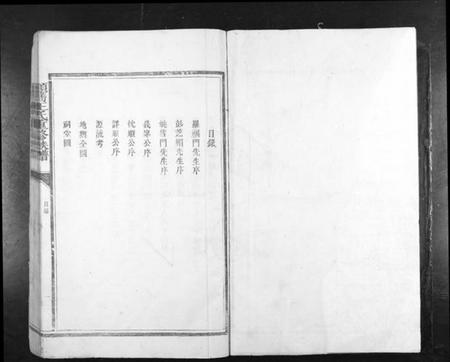 目錄
羅嶺門先生序
彭芝鶴先生序
姚雪門先生序
義寧公序
忱順公序
詳順公序
源流考
地輿全圖
祠堂圖
目錄